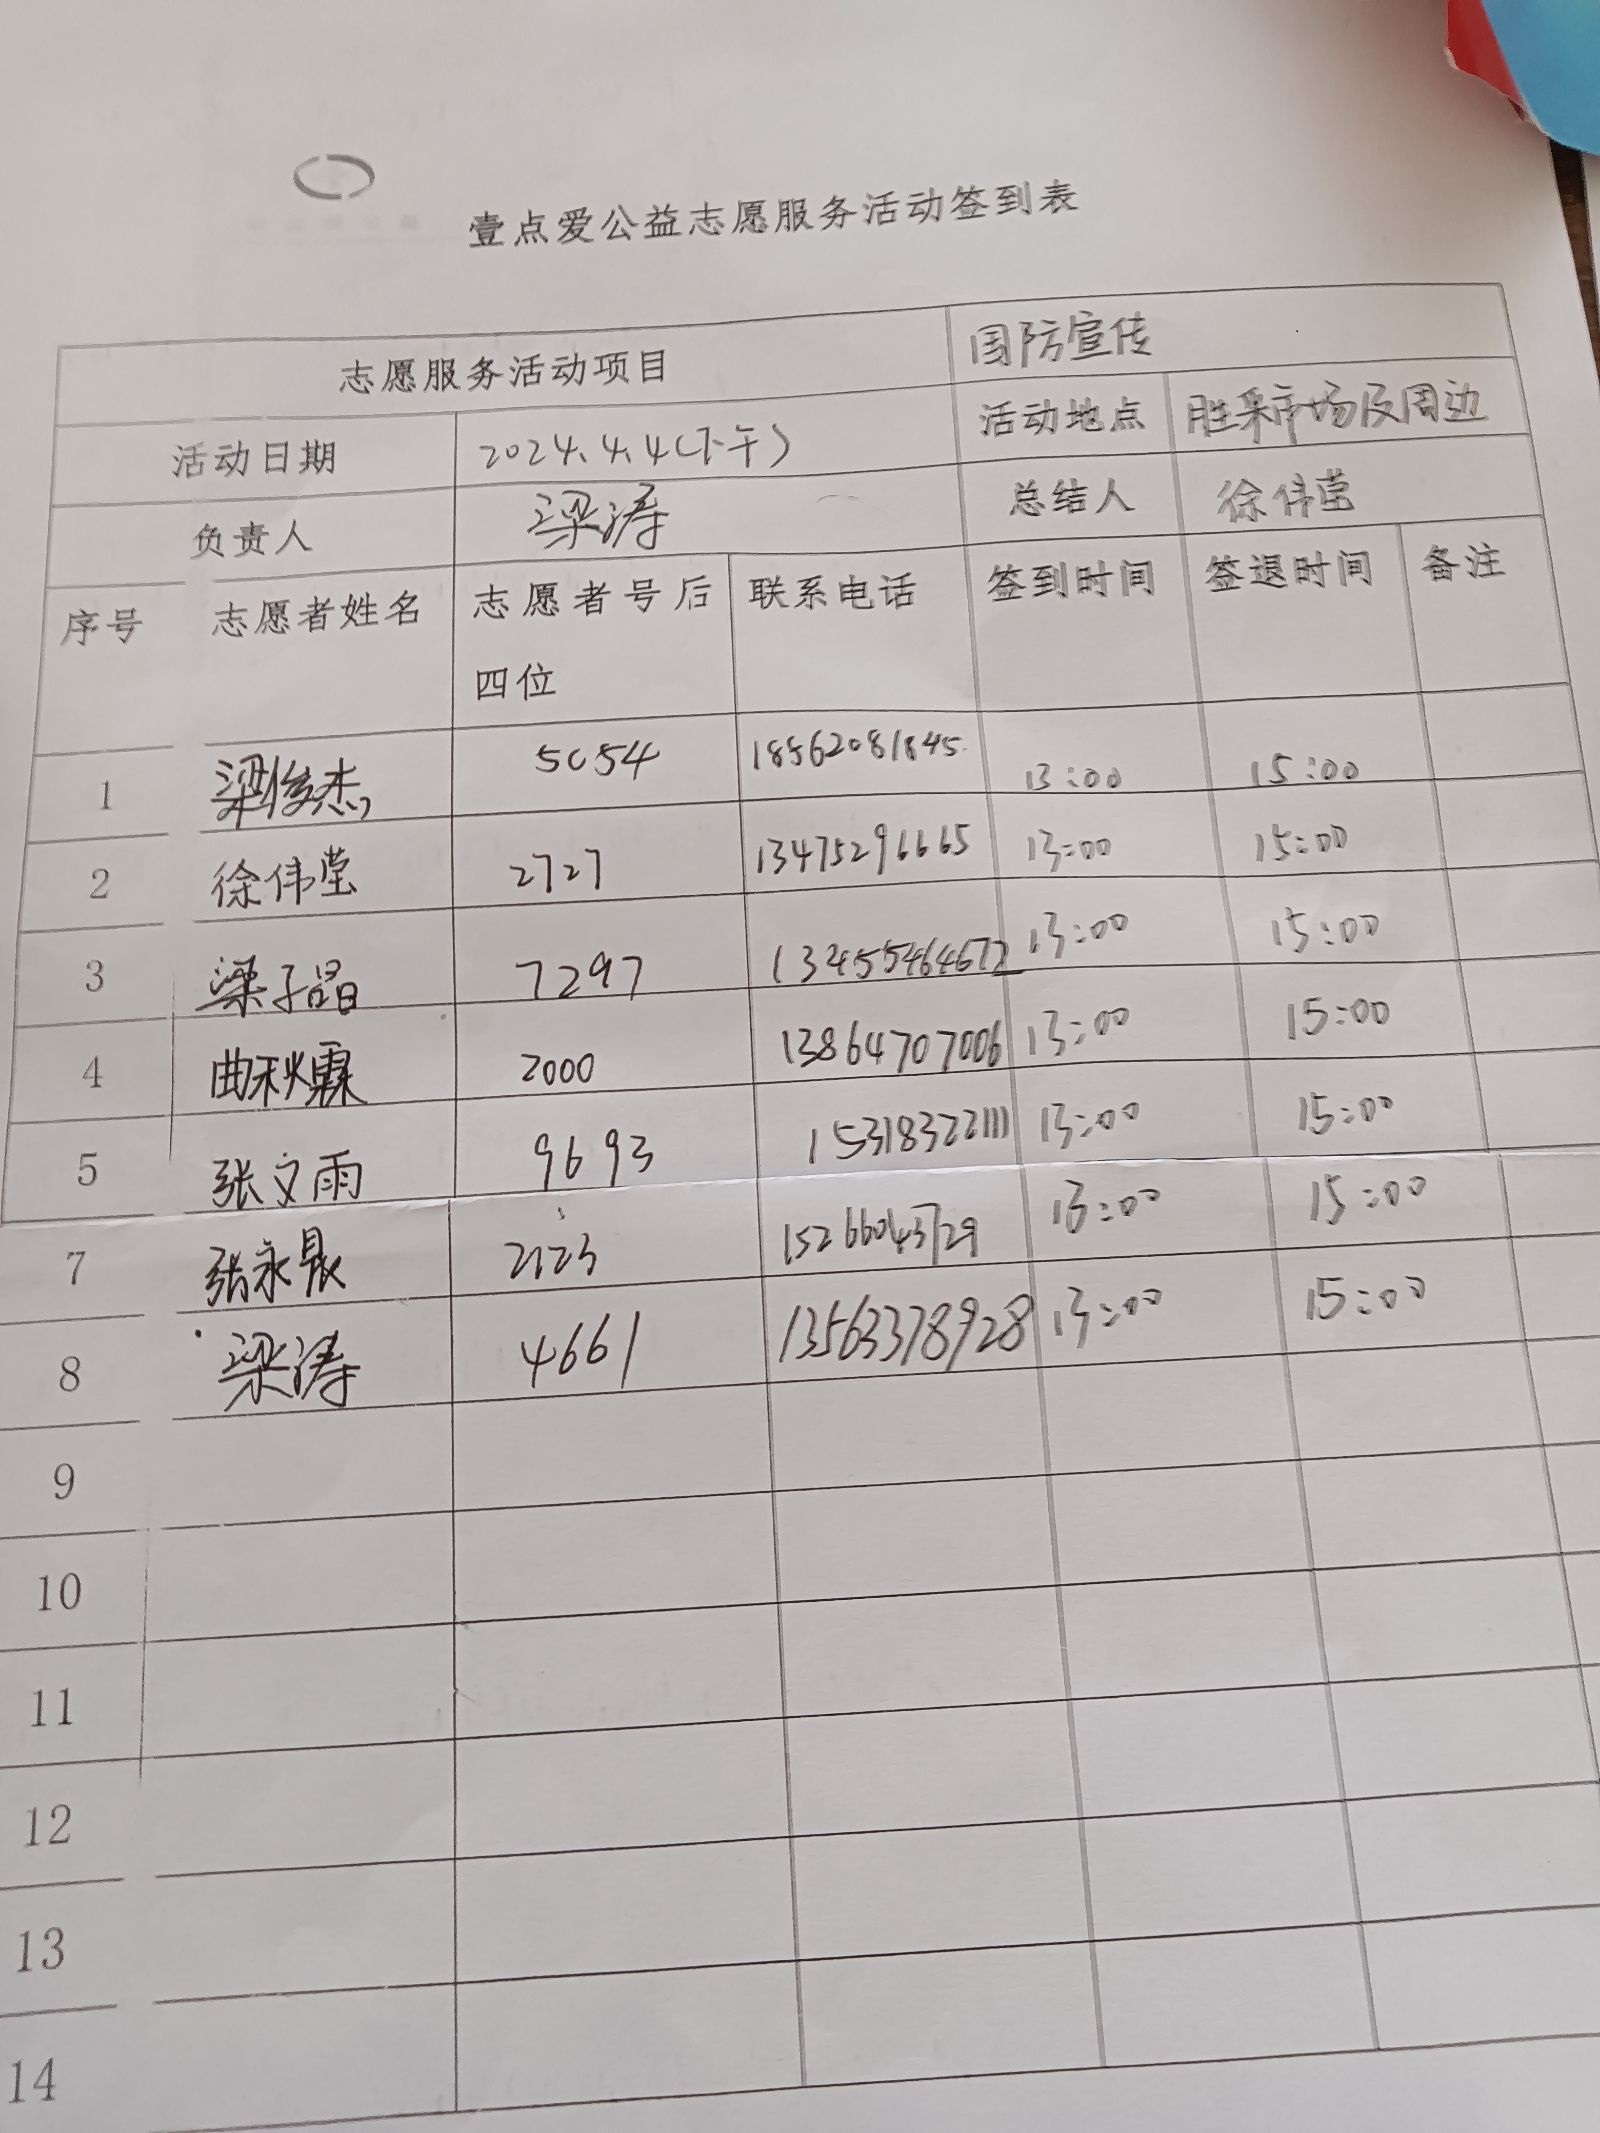 壹点爱公益志愿服务活动签到表
志愿服务活动项目 国防宣传
活动日期 2024.4.4(下午) 活动地点 胜采市场及周边
负责人 梁涛 总结人 徐伟莹
序号 志愿者姓名 志愿者号后四位 联系电话 签到时间 签退时间 备注
1 梁俊杰 5054 18562081845 13:00 15:00
2 徐伟莹 2727 13475296665 13:00 15:00
3 梁子晶 7297 13455464672 13:00 15:00
4 曲秋霖 2000 13864707006 13:00 15:00
5 张文雨 9693 15318322111 13:00 15:00
7 张永 2123 15266043729 13:00 15:00
8 梁涛 4661 13563378928 13:00 15:00
9
10
11
12
13
14